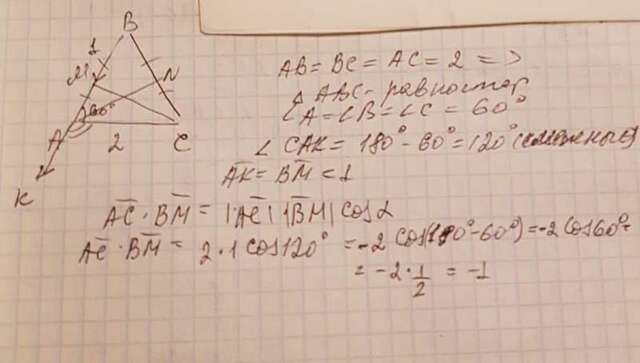 B
1
M
N
60°
A
2
C
K
AB = BC = AC = 2 =>
△ ABC - равностор
∠A = ∠B = ∠C = 60°
∠ CAK = 180° - 60° = 120° (смежные)
AK̅ = BM̅ = 1
AC̅ · BM̅ = |AC̅| |BM̅| cos α
AC̅ · BM̅ = 2 · 1 cos 120° = -2 cos(180° - 60°) = -2 cos 60° =
= -2 · 1/2 = -1